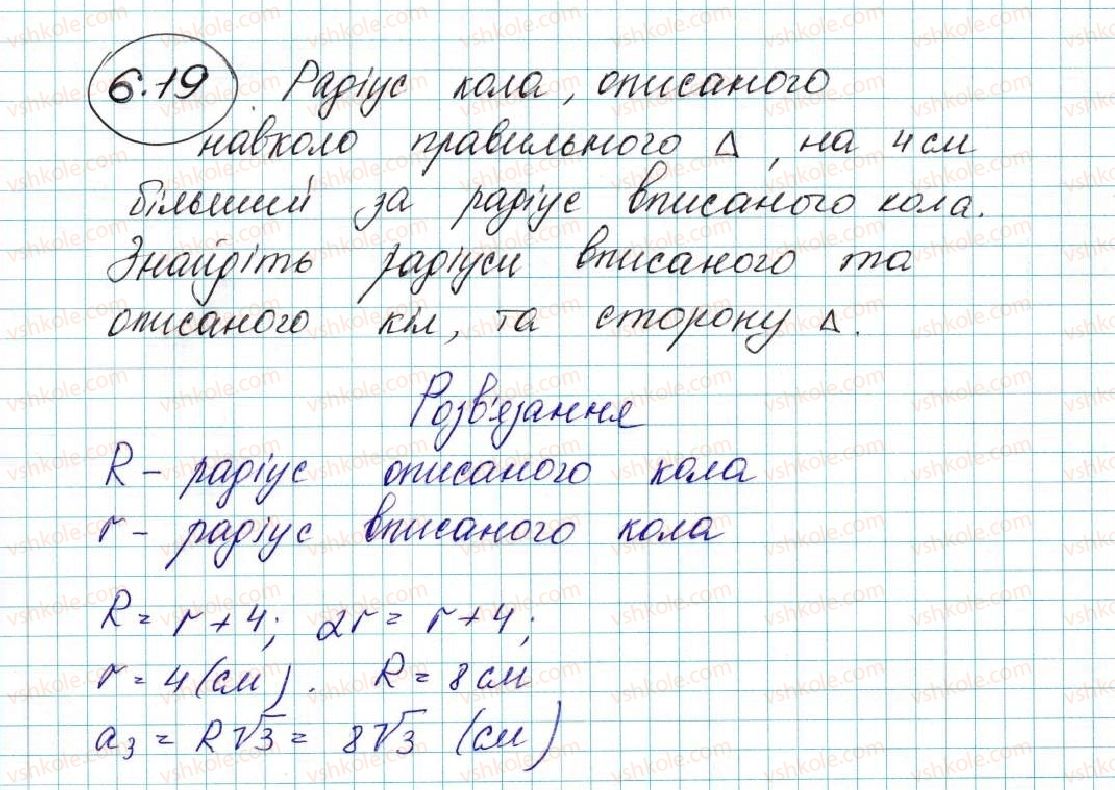 6.19. Радіус кола, описаного
навколо правильного Δ, на 4 см
більший за радіус вписаного кола.
Знайдіть радіуси вписаного та
описаного кіл, та сторону Δ.
Розв'язання
R - радіус описаного кола
r - радіус вписаного кола
R = r + 4; 2r = r + 4;
r = 4 (см). R = 8 см
a₃ = R√3 = 8√3 (см)